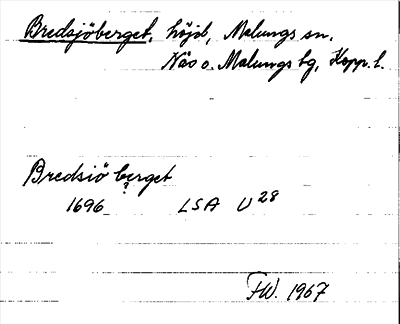 Bredsjöberget, höjd, Malungs sn,
Näs o. Malungs tg, Kopp. l.
Bredsiö berget
?
1696 LSA U 28
FW. 1967